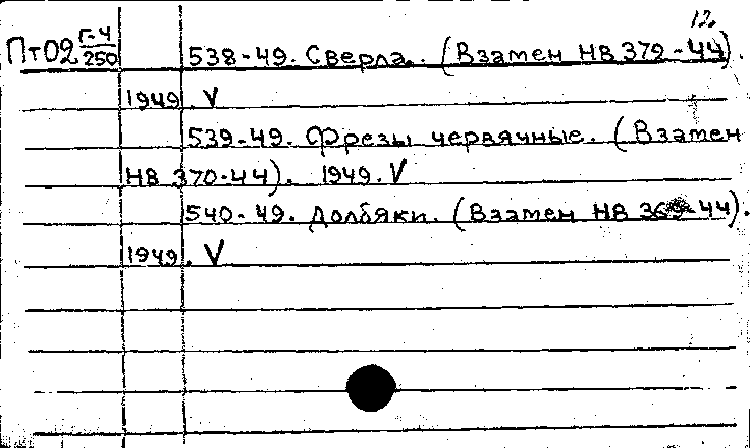 12.
ПТ02 Г-4/250 538-49. Сверла. (Взамен НВ 372-44).
1949. V
539-49. Фрезы червячные. (Взамен
НВ 370-44). 1949. V
540-49. Долбяки. (Взамен НВ 369-44).
1949. V